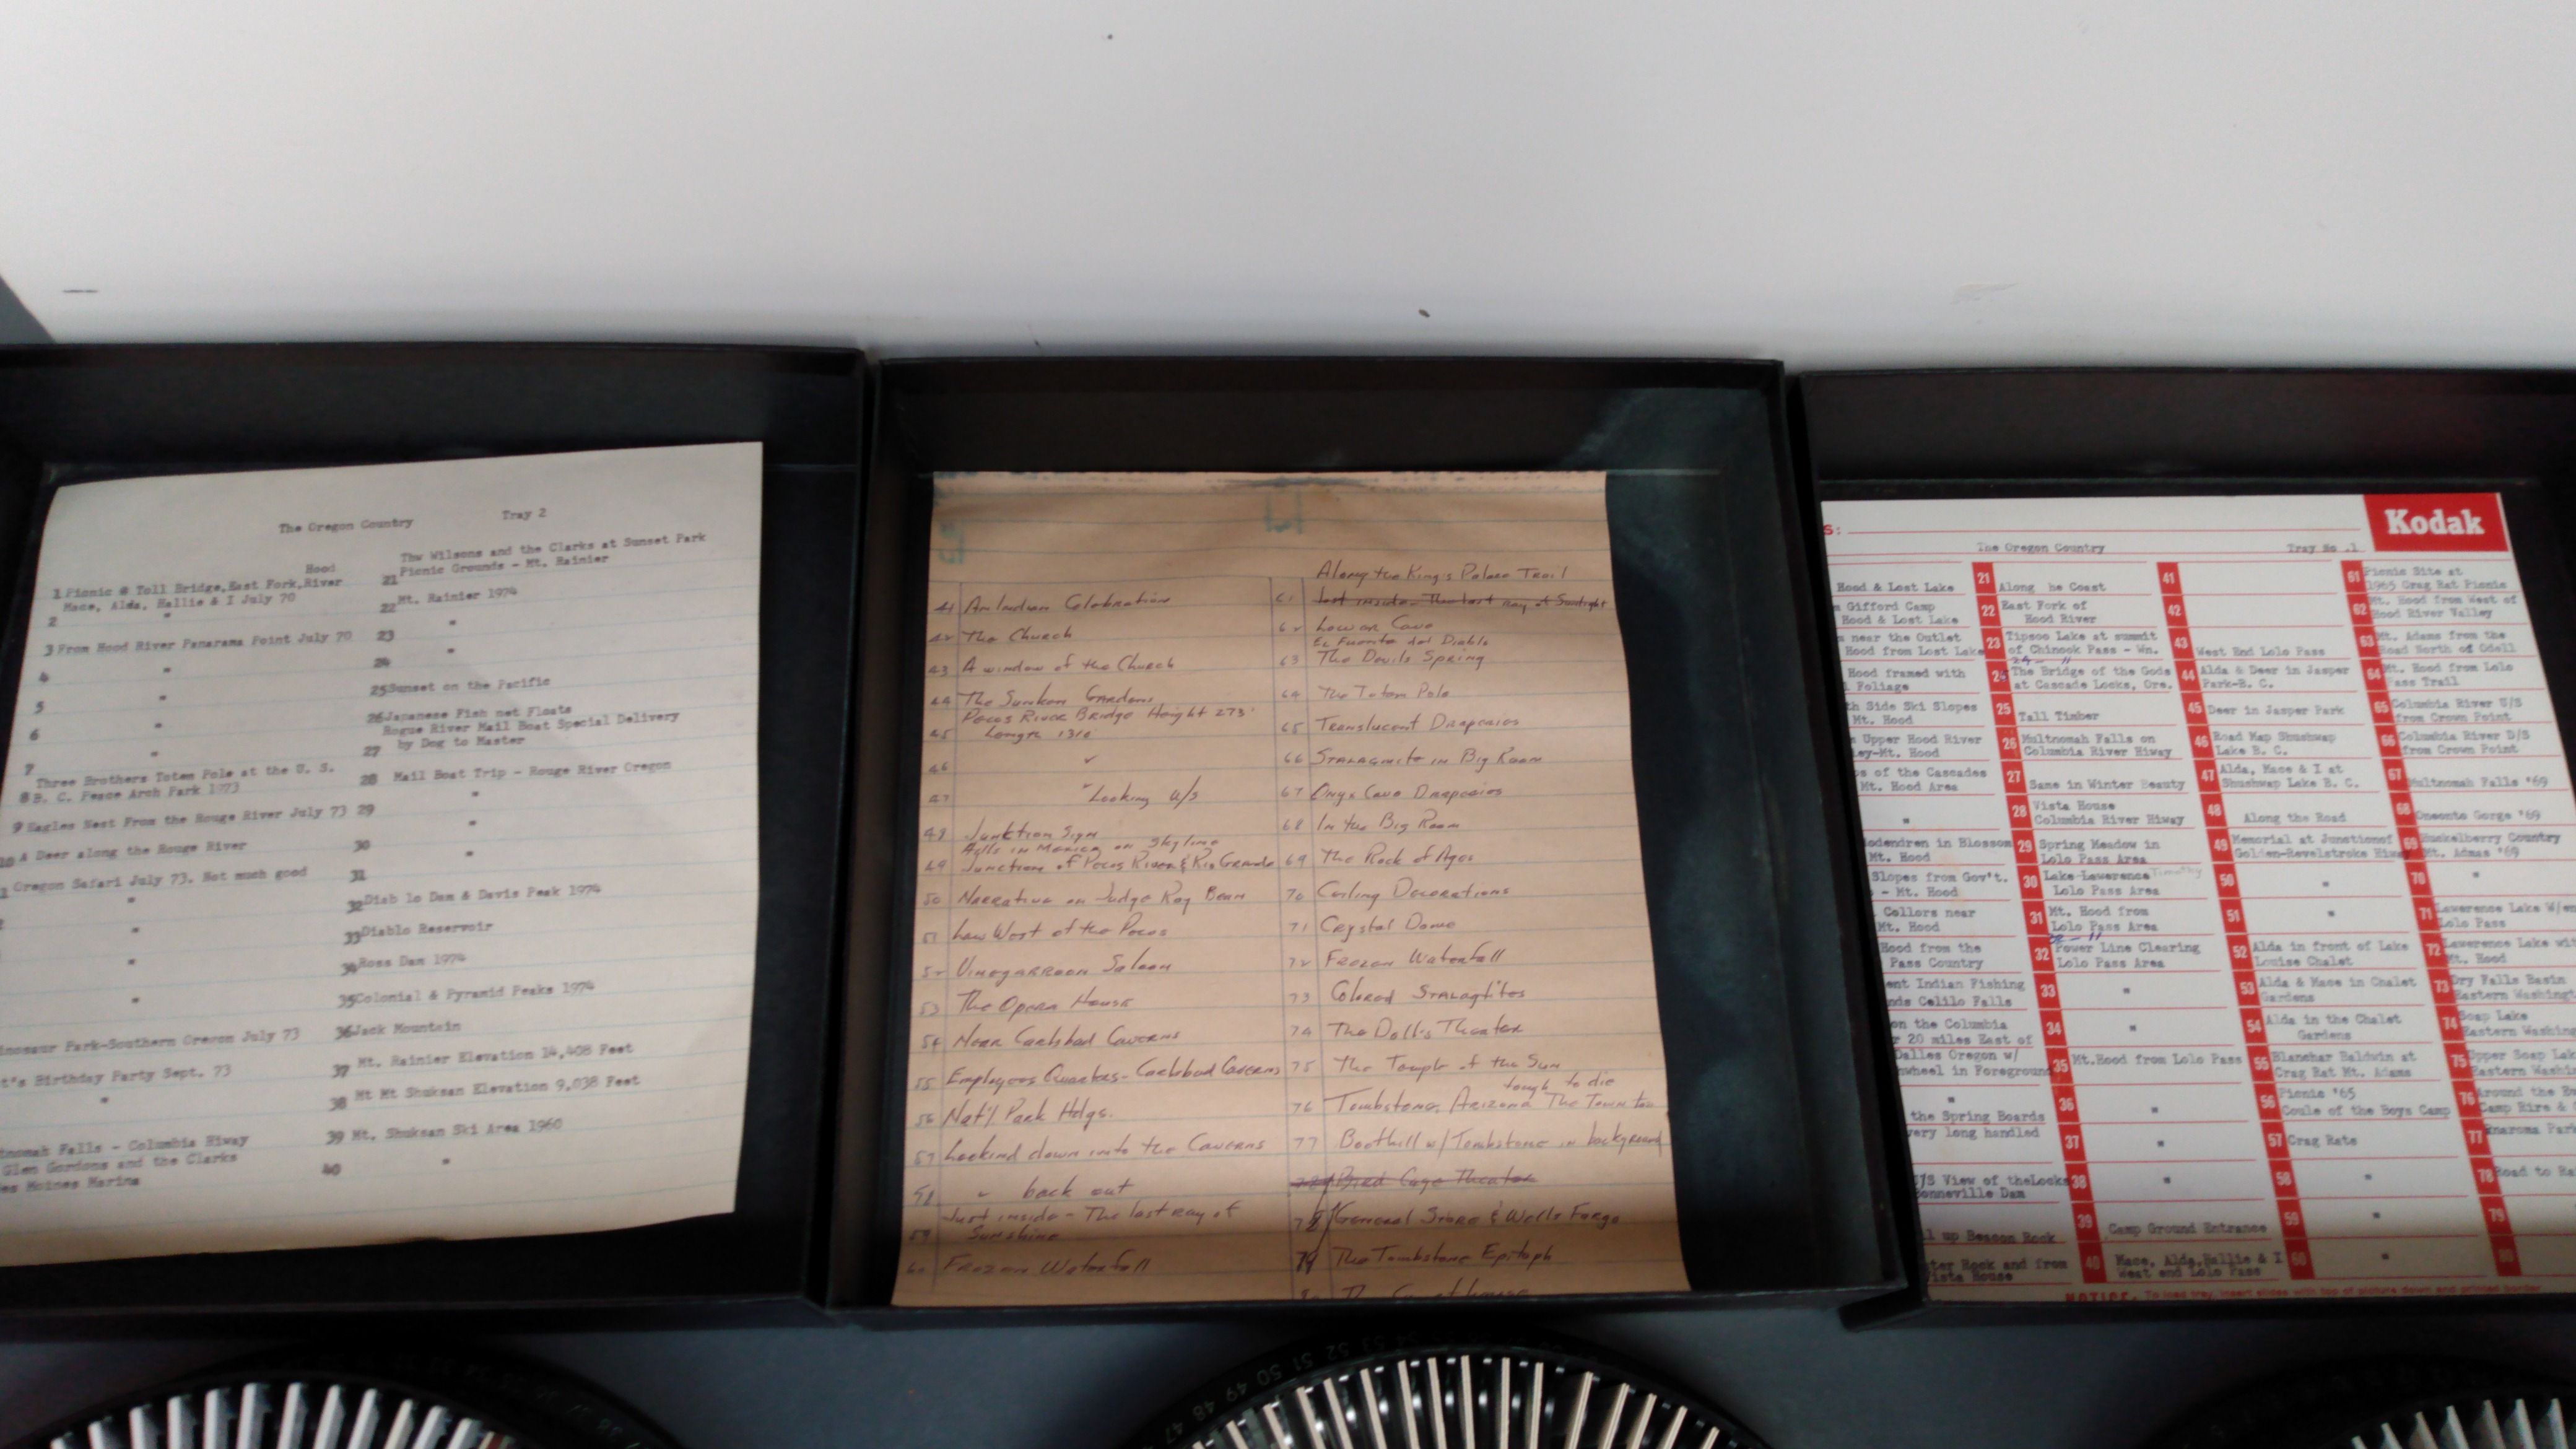 The Oregon Country Tray 2
Hood
1 Picnic @ Toll Bridge,East Fork,River
Mace, Alda, Hallie & I July 70
2 "
3 From Hood River Panarama Point July 70
4 "
5 "
6 "
7 "
Three Brothers Totem Pole at the U. S.
8 B. C. Peace Arch Park 1973
9 Eagles Nest From the Rouge River July 73
10 A Deer along the Rouge River
Oregon Safari July 73. Not much good
"
"
"
"
inosaur Park-Southern Oregon July 73
t's Birthday Party Sept. 73
"
tnomah Falls - Columbia Hiway
Glen Gordons and the Clarks
es Moines Marina
Thw Wilsons and the Clarks at Sunset Park
21 Picnic Grounds - Mt. Rainier
22 Mt. Rainier 1974
23 "
24 "
25 Sunset on the Pacific
26 Japanese Fish net Floats
Rogue River Mail Boat Special Delivery
27 by Dog to Master
28 Mail Boat Trip - Rouge River Oregon
29 "
30 "
31 "
32 Diab lo Dam & Davis Peak 1974
33 Diablo Reservoir
34 Ross Dam 1974
35 Colonial & Pyramid Peaks 1974
36 Jack Mountain
37 Mt. Rainier Elevation 14,408 Feet
38 Mt Mt Shuksan Elevation 9,038 Feet
39 Mt. Shuksan Ski Area 1960
40 "
41 An Indian Celebration
42 The Church
43 A window of the Church
44 The Sunken Gardens
Pecos River Bridge Height 273'
45 Length 1310
46 "
47 " Looking U/S
48 Junktion Sign
Hills in Mexico on Skyline
49 Junction of Pecos River & Rio Grande
50 Narrative on Judge Roy Bean
51 Law West of the Pecos
52 Vinegarroon Saloon
53 The Opera House
54 Near Carlsbad Caverns
55 Employees Quarters - Carlsbad Caverns
56 Nat'l Park Hdqs.
57 Lookind down into the Caverns
58 " back out
Just inside - The last ray of
59 Sunshine
60 Frozen Waterfall
Along the King's Palace Trail
61 Just inside - The last ray of Sunlight
62 Lower Cave
El Fuente del Diablo
63 The Devils Spring
64 The Totem Pole
65 Translucent Draperies
66 Stalagmite in Big Room
67 Onyx Cave Draperies
68 In the Big Room
69 The Rock of Ages
70 Ceiling Decorations
71 Crystal Dome
72 Frozen Waterfall
73 Colored Stalagtites
74 The Doll's Theater
75 The Temple of the Sun
tough to die
76 Tombstone, Arizona The Town too
77 Boothill w/ Tombstone in background
78 Bird Cage Theater
78 General Store & Wells Fargo
79 The Tombstone Epitaph
80 The Courthouse
S:
Kodak
The Oregon Country Tray No .1
Hood & Lost Lake
Gifford Camp
Hood & Lost Lake
near the Outlet
Hood from Lost Lake
Hood framed with
Foliage
th Side Ski Slopes
Mt. Hood
Upper Hood River
ley-Mt. Hood
s of the Cascades
Mt. Hood Area
"
dodendren in Blossom
Mt. Hood
Slopes from Gov't.
- Mt. Hood
Collors near
Mt. Hood
Hood from the
Pass Country
ent Indian Fishing
nds Celilo Falls
on the Columbia
r 20 miles East of
Dalles Oregon w/
wheel in Foreground
"
the Spring Boards
very long handled
U/S View of theLocks
Bonneville Dam
l up Beacon Rock
ter Rock and from
Vista House
21 Along he Coast
22 East Fork of
Hood River
23 Tipsoo Lake at summit
of Chinook Pass - Wn.
24 - "
24 The Bridge of the Gods
at Cascade Locks, Ore.
25 Tall Timber
26 Multnomah Falls on
Columbia River Hiway
27 Same in Winter Beauty
28 Vista House
Columbia River Hiway
29 Spring Meadow in
Lolo Pass Area
30 Lake Lawerence Timothy
Lolo Pass Area
31 Mt. Hood from
Lolo Pass Area
32 - "
32 Power Line Clearing
Lolo Pass Area
33 "
34 "
35 Mt.Hood from Lolo Pass
36 "
37 "
38 "
39 Camp Ground Entrance
40 Mace, Alda,Hallie & I
West end Lolo Pass
41
42
43 West End Lolo Pass
44 Alda & Deer in Jasper
Park-B. C.
45 Deer in Jasper Park
46 Road Map Shushwap
Lake B. C.
47 Alda, Mace & I at
Shushwap Lake B. C.
48 Along the Road
49 Memorial at Junctionof
Golden-Revelstroke Hiway
50 "
51 "
52 Alda in front of Lake
Louise Chalet
53 Alda & Mace in Chalet
Gardens
54 Alda in the Chalet
Gardens
55 Blanchar Baldwin at
Crag Rat Mt. Adams
56 Picnic '65
Coule of the Boys Camp
57 Crag Rats
58 "
59 "
60 "
61 Picnic Site at
1965 Crag Rat Picnic
62 Mt. Hood from West of
Hood River Valley
63 Mt. Adams from the
Road North of Odell
64 Mt. Hood from Lolo
Pass Trail
65 Columbia River U/S
from Crown Point
66 Columbia River D/S
from Crown Point
67 Multnomah Falls '69
68 Oneonto Gorge '69
69 Huckelberry Country
Mt. Admas '69
70 "
71 Lawerence Lake W/en
Lolo Pass
72 Lawerence Lake wit
Mt. Hood
73 Dry Falls Basin
Eastern Washingt
74 Soap Lake
Eastern Washing
75 Upper Soap Lak
Eastern Washi
76 Around the
Camp Rire &
77 narama Park
78 Road to Ra
79
80
NOTICE. To load tray, insert slides with top of picture down and printed border
47 48 49 50 51 52 53 54